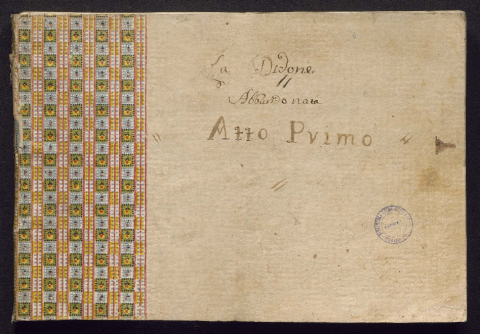 La Didone
Abbandonata
Atto Primo